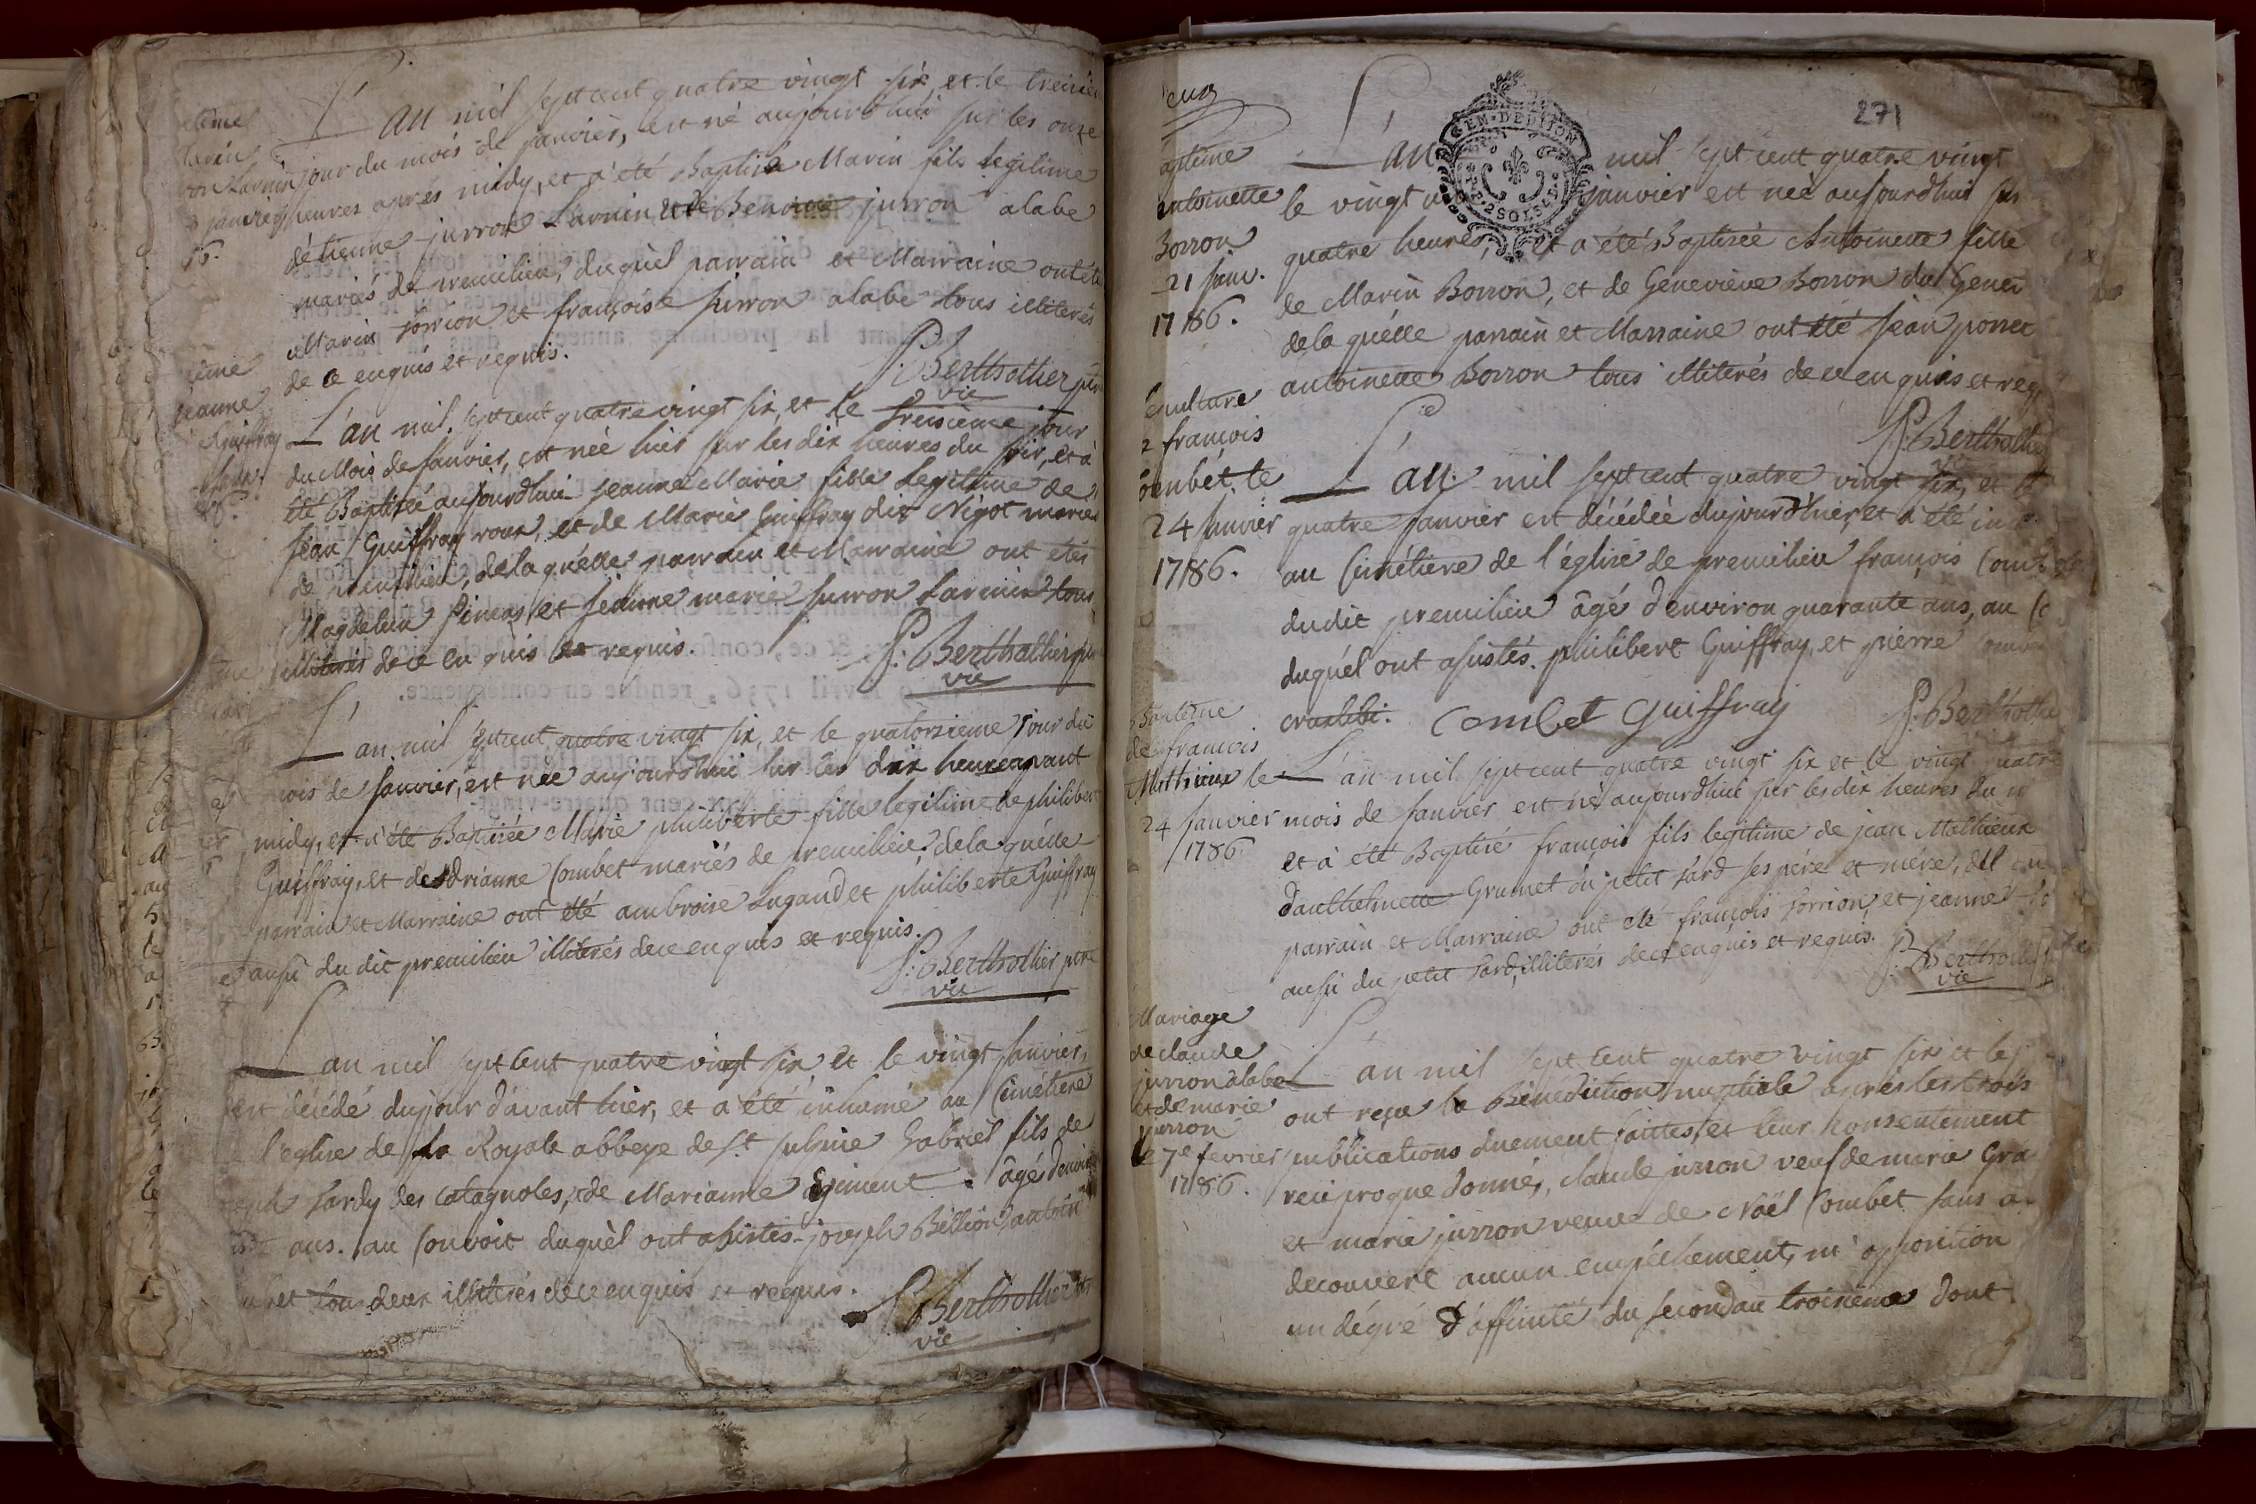 L'an mil sept cent quatre vingt six, et le treizie
jour du mois de janvier, est né aujourdhui sur les onze
heures aprés midy, et a été Baptisé Marin fils legitime
détienne jurron Larnin et de Benoite jurron alabe
mariés de premilieu, duquel parrain et Marraine ont été
Marin sorrion et françoise jurron alabe tous illiterés
de ce enquis et requis.
P. Berthothier ptre
vic
Jeanne
Guiffray
L'an mil sept cent quatre vingt six, et le treisieme jour
du Mois de janvier, est née hier sur les dix heures du soir, et à
été Baptisée aujourdhui jeanne Marie fille Legitime de
jean Guiffray roux, et de Marie Guiffray dit Nigot mariés
de premilieu, de la quélle parrain et Marraine ont étés
Magdelein Pineas, et jeanne marie jurron Larnin tous
illiterés de ce enquis et requis.
P. Berthothier ptre
vic
L'an mil sept cent quatre vingt six, et le quatorzieme jour du
mois de janvier, est née aujourdhui sur les dix heures avant
midy, et a été Baptisée Marie philiberte fille legitime de philibert
Guiffray, et dAdrianne Combet mariés de premilieu, de la quélle
parrain et Marraine ont été ambroise Lugand et philiberte Guiffray
aussi du dit premilieu illiterés de ce enquis et requis.
P. Berthothier ptre
vic
L'an mil sept cent quatre vingt six et le vingt janvier,
est décédé du jour d'avant hier, et a été inhumé au Cimétiere
l'eglise de la Royale abbeye de St. sulpice Gabriel fils de
joseph sardy des catagnoles, et de Marianne agiment. âgé d'envir
ans. au Convoit duquèl ont assistés joseph Béllion,
tous deux illiterés de ce enquis et requis.
P. Berthothier ptre
vic
271
GEN. DE DIJON
2 SOLS
antoinette
Borron
21 janv.
1786.
L'an mil sept cent quatre vingt
le vingt janvier est née aujourdhui sur
quatre heures, et a été Baptisée Antoinette fille
de Marin Borron, et de Geneviéve Borron du Genev
de la quélle parrain et Marraine ont été jean porret
antoinette Borron tous illiterés de ce enquis et req
P. Berthothie
sepulture
françois
Combét le
24 janvier
1786.
L'an mil sept cent quatre vingt six, et le
quatre janvier est décédée du jour d'hier, et a été in
au Cimétiere de l'église de premilieu françois Comb
dudit premilieu âgé d'environ quarante ans, au C
duquél ont asistés philibert Guiffray, et pierre Com
Combet Guiffray
P. Berthothie
Baptême
de françois
Mathieux le
24 janvier
1786
L'an mil sept cent quatre vingt six et le vingt quatre
mois de janvier est né aujourdhui sur les dix heures du
et à été Baptisé françois fils legitime de jean Mathieux
d'anthelmette Grumet du petit sard ses pére et mére,
parrain et Marraine ont été françois sorrion, et jeanne
aussi du petit sard, illiterés de ce enquis et requis.
P. Berthothie
vic
Mariage
de claude
jurron alabe
et de marie
jurron
le 7e fevrier
1786.
L'an mil sept cent quatre vingt six et le
ont reçu la Bénédiction nuptiale aprés les trois
publications duement faittes, et leur consentement
reciproque donné, claude jurron veuf de marie Gra
et marie jurron veuve de Noël Combet sans a
decouvert aucun empéchement, ni opposition
un dégré d'affinité du second au troisieme dont